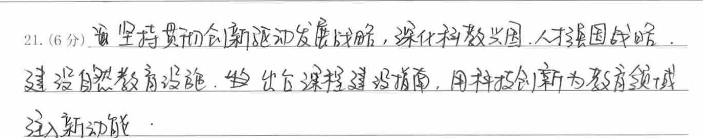 21.(6分) 坚持贯彻创新驱动发展战略,深化科教兴国.人才强国战略.
建设自然教育设施. 出台课程建设指南,用科技创新为教育领域
注入新动能.